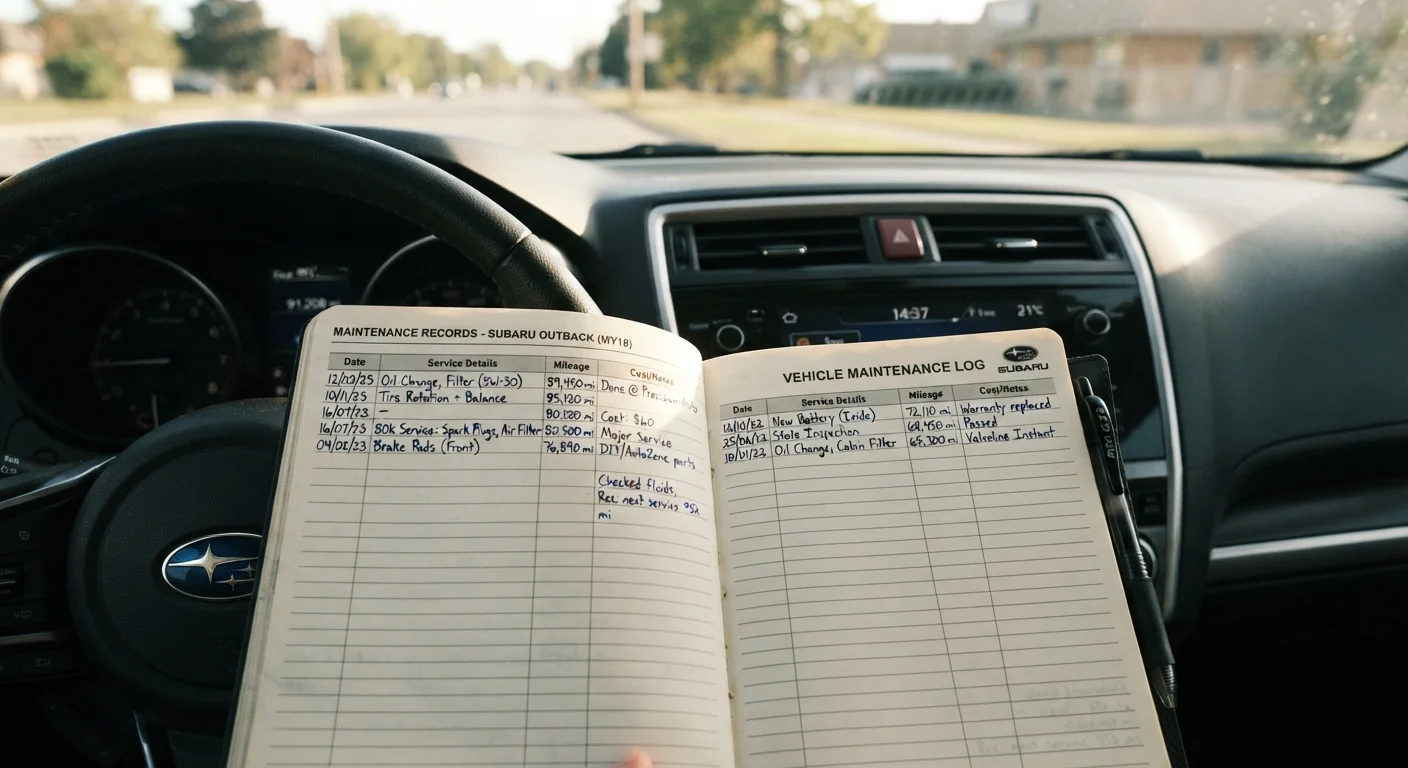 91,208 mi
14:37
21°C
MAINTENANCE RECORDS - SUBARU OUTBACK (MY18)
Date Service Details Mileage Cost/Notes
Oil Change, Filter 89,450 mi Done @
10/11/25 Tire Rotation + Balance 95,120 mi
16/07/23 – 80,120 mi Cost: $60
16/07/23 80k Service: Spark Plugs, Air Filter 80,500 mi Major Service
Brake Pads (Front) 76,840 mi DIY/AutoZone parts
Checked fluids,
Rec. next service 95k
mi
VEHICLE MAINTENANCE LOG
SUBARU
Date Service Details Mileage Cost/Notes
New Battery 72,110 mi Warranty replaced
Inspection 68,450 mi Passed
Oil Change, Cabin Filter 65,300 mi Instant